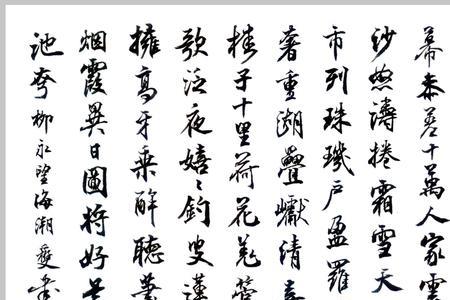 幕叅差十萬人家雲
沙怒濤捲霜雪天
市列珠璣戶盈羅
奢重湖疊巘清嘉
桂子十里荷花羌管
歌泛夜嬉〻釣叟蓮
擁高牙乘醉聽簫
烟霞異日圖將好景
池夸柳永望海潮